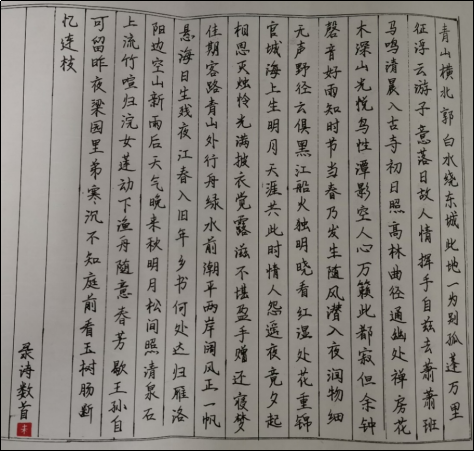 青山横北郭白水绕东城此地一为别孤蓬万里
征浮云游子意落日故人情挥手自兹去萧萧班
马鸣清晨入古寺初日照高林曲径通幽处禅房花
木深山光悦鸟性潭影空人心万籁此都寂但余钟
磬音好雨知时节当春乃发生随风潜入夜润物细
无声野径云俱黑江船火独明晓看红湿处花重锦
官城海上生明月天涯共此时情人怨遥夜竟夕起
相思灭烛怜光满披衣觉露滋不堪盈手赠还寝梦
佳期客路青山外行舟绿水前潮平两岸阔风正一帆
悬海日生残夜江春入旧年乡书何处达归雁洛
阳边空山新雨后天气晚来秋明月松间照清泉石
上流竹喧归浣女莲动下渔舟随意春芳歇王孙自
可留昨夜梁园里弟寒沉不知庭前看玉树肠断
忆连枝
录诗数首